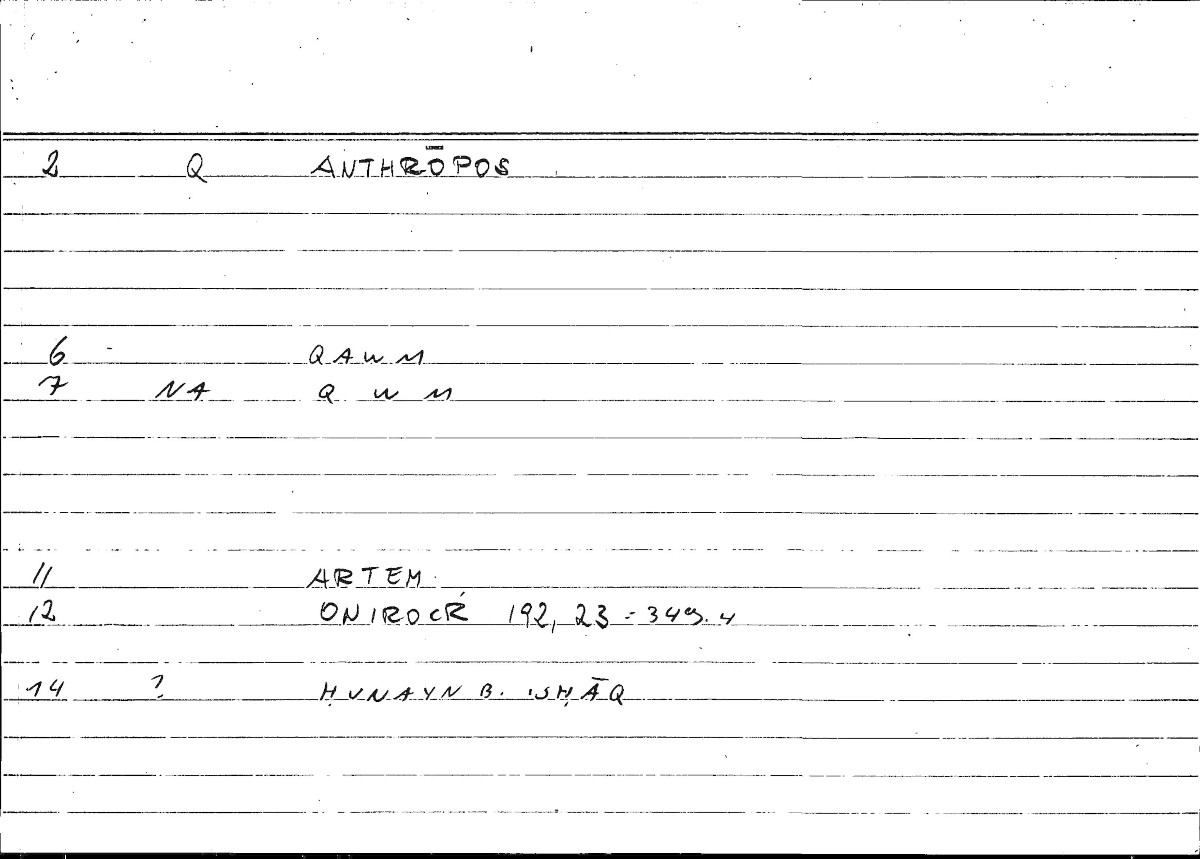 2 Q ANTHRŌPOS
6 QAWM
7 NA Q W M
11 ARTEM.
12 ONIROCR 192, 23 = 349.4
14 ? ḤUNAYN B. ISḤĀQ